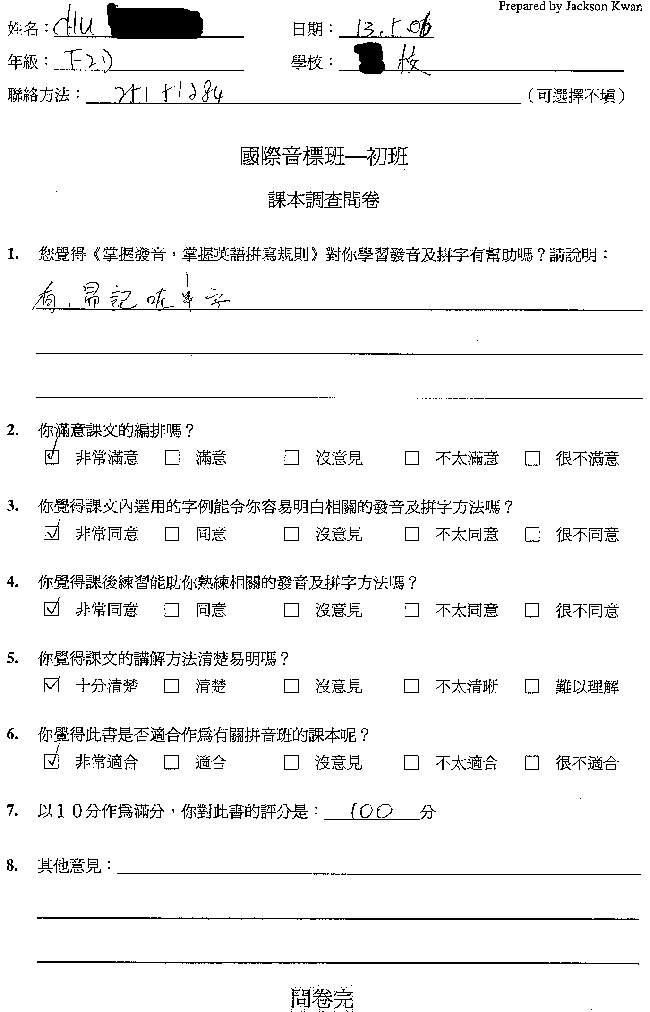 Prepared by Jackson Kwan
姓名：CHU 日期：13.5.06
年級：F.2D 學校：校
聯絡方法：（可選擇不填）
國際音標班—初班
課本調查問卷
1. 您覺得《掌握發音，掌握英語拼寫規則》對你學習發音及拼字有幫助嗎？請說明：
有，易記咗單字
2. 你滿意課文的編排嗎？
☑ 非常滿意 □ 滿意 □ 沒意見 □ 不太滿意 □ 很不滿意
3. 你覺得課文內選用的字例能令你容易明白相關的發音及拼字方法嗎？
☑ 非常同意 □ 同意 □ 沒意見 □ 不太同意 □ 很不同意
4. 你覺得課後練習能助你熟練相關的發音及拼字方法嗎？
☑ 非常同意 □ 同意 □ 沒意見 □ 不太同意 □ 很不同意
5. 你覺得課文的講解方法清楚易明嗎？
☑ 十分清楚 □ 清楚 □ 沒意見 □ 不太清晰 □ 難以理解
6. 你覺得此書是否適合作為有關拼音班的課本呢？
☑ 非常適合 □ 適合 □ 沒意見 □ 不太適合 □ 很不適合
7. 以１０分作為滿分，你對此書的評分是：100分
8. 其他意見：
問卷完